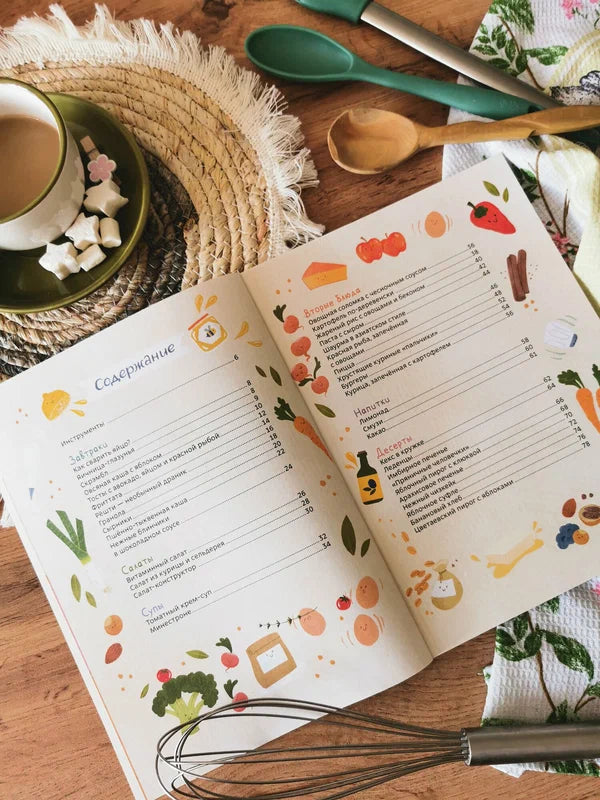 Содержание
Инструменты 6
Завтраки
Как сварить яйцо? 8
Яичница-глазунья 9
Скрамбл 10
Овсяная каша с яблоком 12
Тосты с авокадо, яйцом и красной рыбой 14
Фриттата 16
Рёшти — необычный драник 18
Гранола 20
Сырники 22
Пшённо-тыквенная каша
Нежные блинчики
в шоколадном соусе 24
Салаты
Витаминный салат 26
Салат из курицы и сельдерея 28
Салат-конструктор 30
Супы
Томатный крем-суп 32
Минестроне 34
Вторые блюда
Овощная соломка с чесночным соусом 36
Картофель по-деревенски 38
Жареный рис с овощами и беконом 40
Паста с сыром 42
Шаурма в азиатском стиле 44
Красная рыба, запечённая
с овощами 46
Пицца 48
Хрустящие куриные «пальчики» 52
Бургеры 54
Курица, запечённая с картофелем 56
Напитки
Лимонад 58
Смузи 60
Какао 61
Десерты
Кекс в кружке 62
Леденцы 64
Имбирное печенье
«Пряничные человечки» 66
Яблочный пирог с клюквой 68
Арахисовое печенье 70
Нежный чизкейк 72
Яблочное суфле 74
Банановый хлеб 76
Цветаевский пирог с яблоками 78